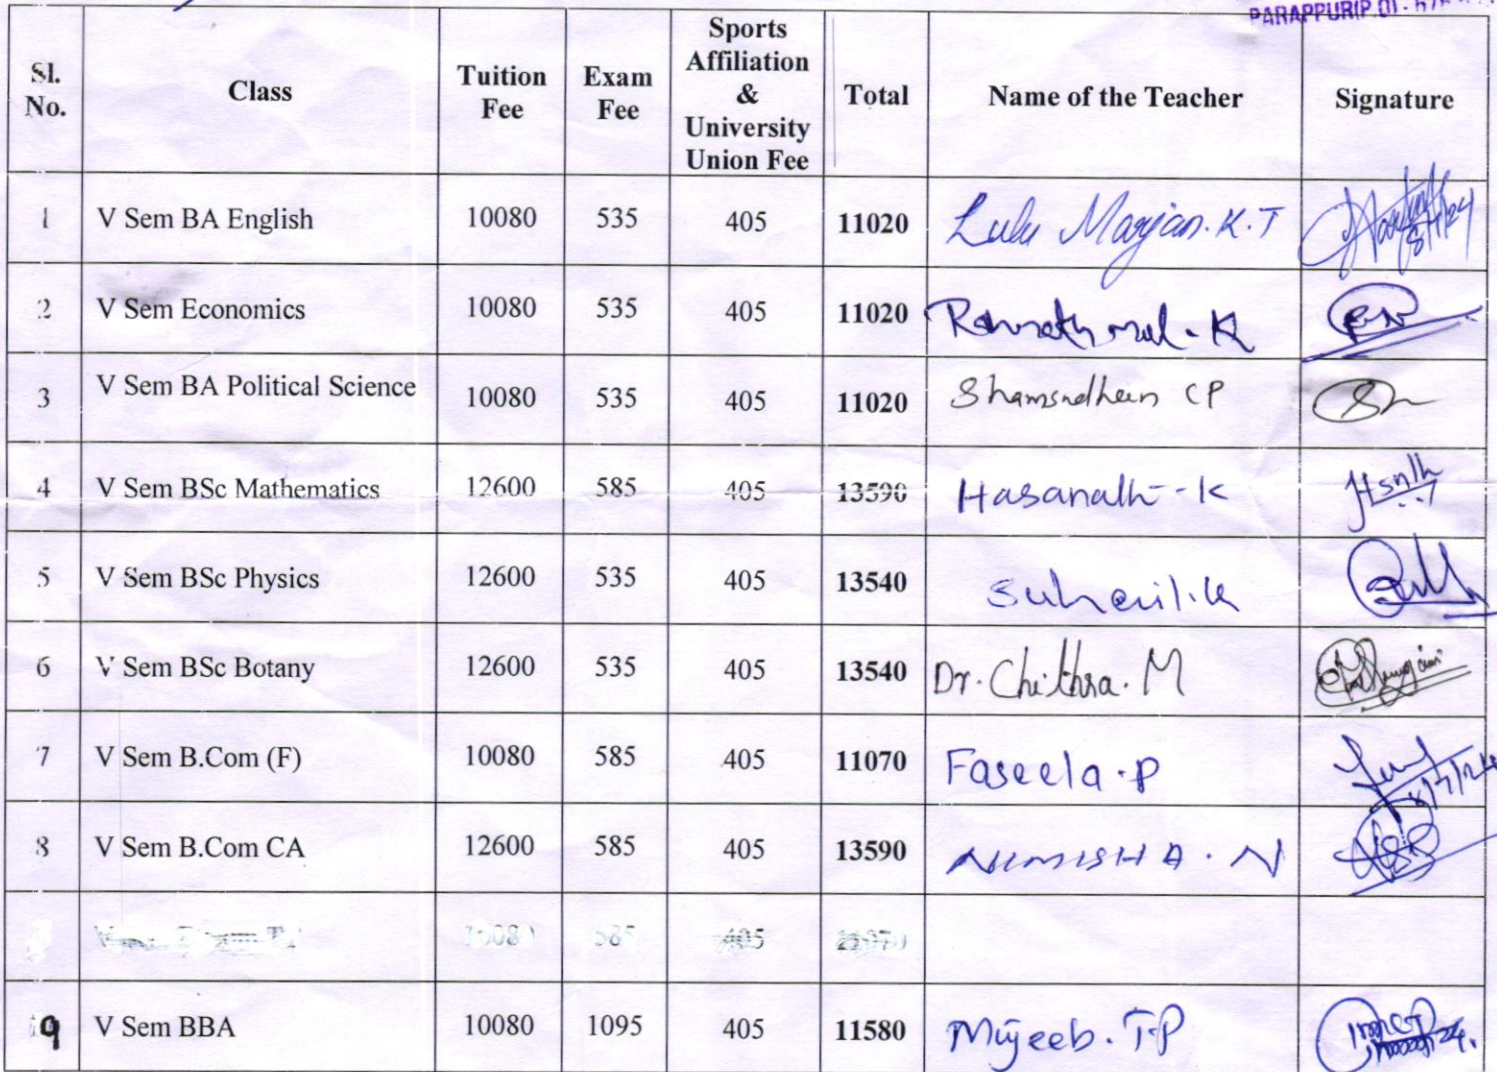 PARAPPUR(P.O)
Sl. No. Class Tuition Fee Exam Fee Sports Affiliation & University Union Fee Total Name of the Teacher Signature
1 V Sem BA English 10080 535 405 11020 Lulu Marjan. K.T
2 V Sem Economics 10080 535 405 11020 K
3 V Sem BA Political Science 10080 535 405 11020 Shamsudheen CP
4 V Sem BSc Mathematics 12600 585 405 13590 Hasanath - K
5 V Sem BSc Physics 12600 535 405 13540 Suhail.K
6 V Sem BSc Botany 12600 535 405 13540 Dr. Chithra. M
7 V Sem B.Com (F) 10080 585 405 11070 Faseela. P
8 V Sem B.Com CA 12600 585 405 13590 NIMISHA. N
10080 585 405 11070
9 V Sem BBA 10080 1095 405 11580 Mujeeb. T.P